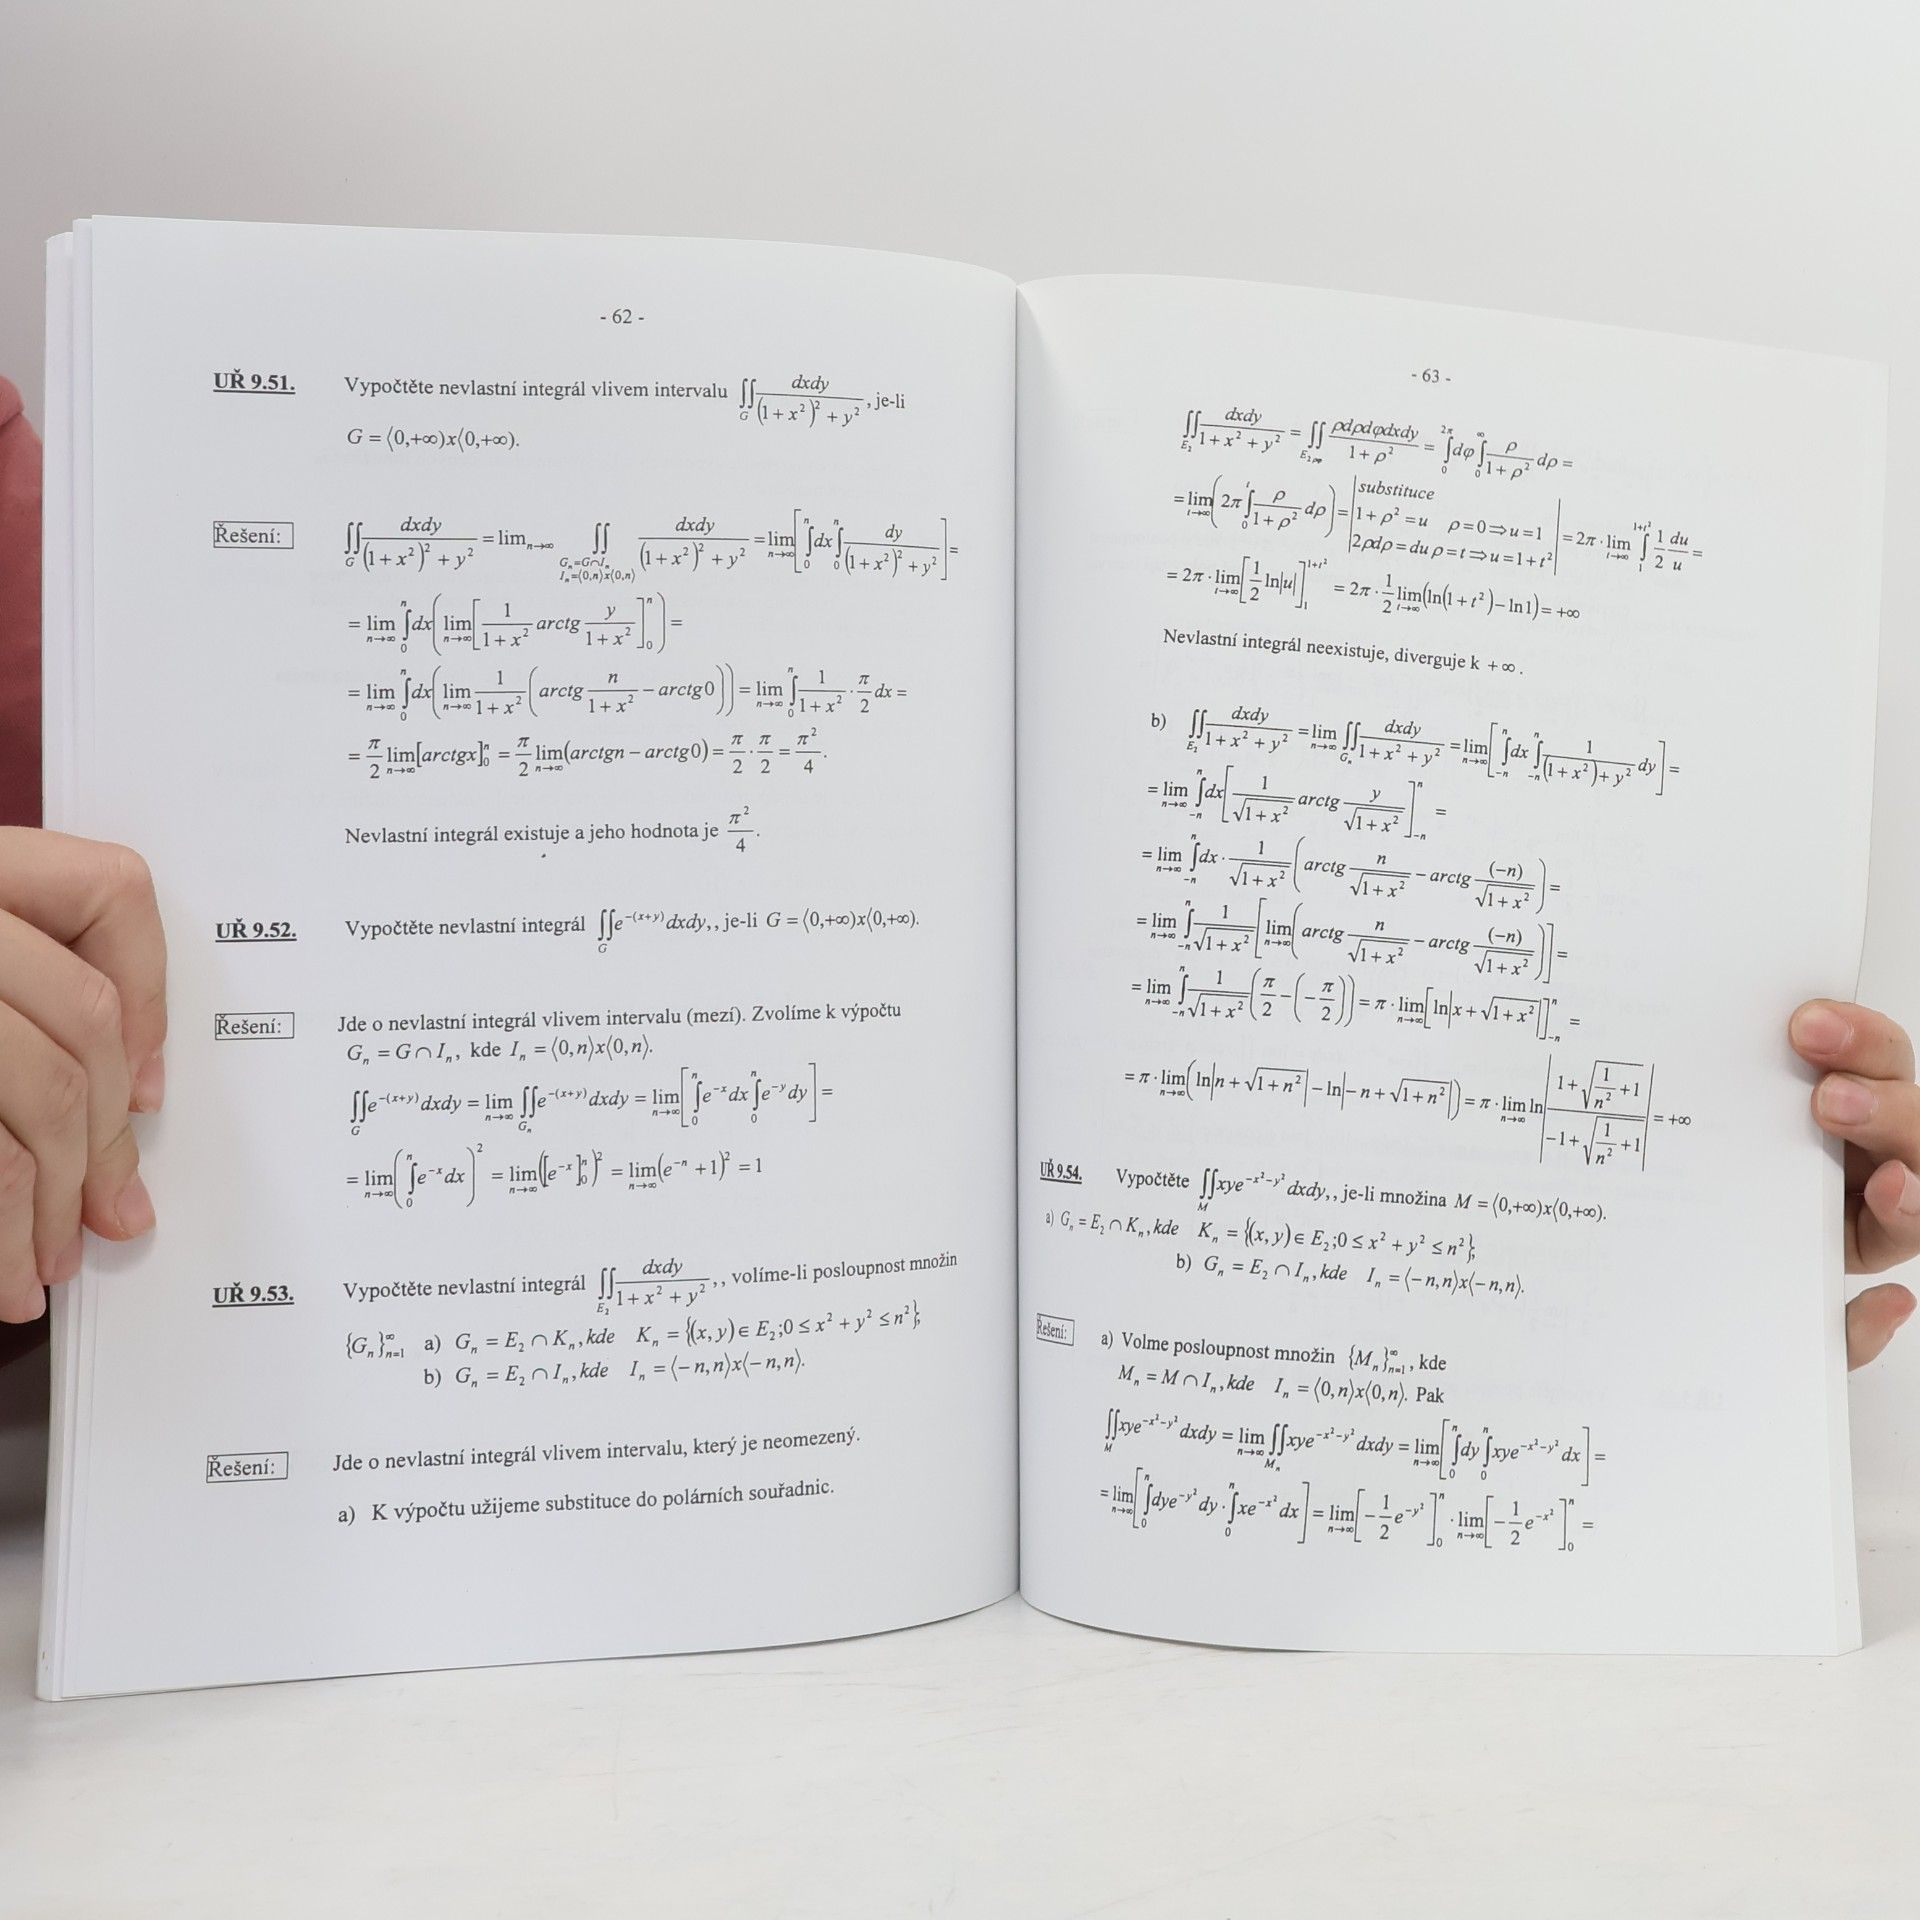 - 62 -
UŘ 9.51. Vypočtěte nevlastní integrál vlivem intervalu ∬_G dxdy/((1+x²)²+y²), je-li
G = ⟨0,+∞)x⟨0,+∞).
Řešení: ∬_G dxdy/((1+x²)²+y²) = lim_{n→∞} ∬_{G_n=G∩I_n, I_n=⟨0,n⟩x⟨0,n⟩} dxdy/((1+x²)²+y²) = lim_{n→∞}[∫_0^n dx ∫_0^n dy/((1+x²)²+y²)] =
= lim_{n→∞} ∫_0^n dx(lim_{n→∞}[1/(1+x²) arctg y/(1+x²)]_0^n) =
= lim_{n→∞} ∫_0^n dx(lim_{n→∞} 1/(1+x²) (arctg n/(1+x²) − arctg0)) = lim_{n→∞} ∫_0^n 1/(1+x²) · π/2 dx =
= π/2 lim_{n→∞}[arctgx]_0^n = π/2 lim_{n→∞}(arctgn − arctg0) = π/2 · π/2 = π²/4.
Nevlastní integrál existuje a jeho hodnota je π²/4.
UŘ 9.52. Vypočtěte nevlastní integrál ∬_G e^{-(x+y)} dxdy,, je-li G = ⟨0,+∞)x⟨0,+∞).
Řešení: Jde o nevlastní integrál vlivem intervalu (mezí). Zvolíme k výpočtu
G_n = G∩I_n, kde I_n = ⟨0,n⟩x⟨0,n⟩.
∬_G e^{-(x+y)} dxdy = lim_{n→∞} ∬_{G_n} e^{-(x+y)} dxdy = lim_{n→∞}[∫_0^n e^{-x} dx ∫_0^n e^{-y} dy] =
= lim_{n→∞}(∫_0^n e^{-x} dx)² = lim_{n→∞}([e^{-x}]_0^n)² = lim_{n→∞}(e^{-n} + 1)² = 1
UŘ 9.53. Vypočtěte nevlastní integrál ∬_{E₂} dxdy/(1+x²+y²),, volíme-li posloupnost množin
{G_n}_{n=1}^∞ a) G_n = E₂ ∩ K_n, kde K_n = {(x,y)∈ E₂;0 ≤ x² + y² ≤ n²},
b) G_n = E₂ ∩ I_n, kde I_n = ⟨−n,n⟩x⟨−n,n⟩.
Řešení: Jde o nevlastní integrál vlivem intervalu, který je neomezený.
a) K výpočtu užijeme substituce do polárních souřadnic.
- 63 -
∬_{E₂} dxdy/(1+x²+y²) = ∬_{E₂ρφ} ρdρdφdxdy/(1+ρ²) = ∫_0^{2π} dφ ∫_0^∞ ρ/(1+ρ²) dρ =
= lim_{t→∞}(2π ∫_0^t ρ/(1+ρ²) dρ) = |substituce 1+ρ² = u ρ=0⇒u=1 2ρdρ = du ρ=t⇒u=1+t²| = 2π · lim_{t→∞} ∫_1^{1+t²} 1/2 du/u =
= 2π · lim_{t→∞}[1/2 ln|u|]_1^{1+t²} = 2π · 1/2 lim_{t→∞}(ln(1+t²) − ln1) = +∞
Nevlastní integrál neexistuje, diverguje k +∞.
b) ∬_{E₂} dxdy/(1+x²+y²) = lim_{n→∞} ∬_{G_n} dxdy/(1+x²+y²) = lim_{n→∞}[∫_{-n}^n dx ∫_{-n}^n 1/((1+x²)+y²) dy] =
= lim_{n→∞} ∫_{-n}^n dx[1/√(1+x²) arctg y/√(1+x²)]_{-n}^n =
= lim_{n→∞} ∫_{-n}^n dx · 1/√(1+x²) (arctg n/√(1+x²) − arctg (−n)/√(1+x²)) =
= lim_{n→∞} ∫_{-n}^n 1/√(1+x²) [lim_{n→∞}(arctg n/√(1+x²) − arctg (−n)/√(1+x²))] =
= lim_{n→∞} ∫_{-n}^n 1/√(1+x²) (π/2 − (−π/2)) = π · lim_{n→∞}[ln|x + √(1+x²)|]_{-n}^n =
= π · lim_{n→∞}(ln|n + √(1+n²)| − ln|−n + √(1+n²)|) = π · lim_{n→∞} ln|(1+√(1/n²+1))/(−1+√(1/n²+1))| = +∞
UŘ 9.54. Vypočtěte ∬_M xye^{-x²-y²} dxdy,, je-li množina M = ⟨0,+∞)x⟨0,+∞).
a) G_n = E₂ ∩ K_n, kde K_n = {(x,y)∈ E₂;0 ≤ x² + y² ≤ n²},
b) G_n = E₂ ∩ I_n, kde I_n = ⟨−n,n⟩x⟨−n,n⟩.
Řešení: a) Volme posloupnost množin {M_n}_{n=1}^∞, kde
M_n = M ∩ I_n, kde I_n = ⟨0,n⟩x⟨0,n⟩. Pak
∬_M xye^{-x²-y²} dxdy = lim_{n→∞} ∬_{M_n} xye^{-x²-y²} dxdy = lim_{n→∞}[∫_0^n dy ∫_0^n xye^{-x²-y²} dx] =
= lim_{n→∞}[∫_0^n dye^{-y²} dy · ∫_0^n xe^{-x²} dx] = lim_{n→∞}[−1/2 e^{-y²}]_0^n · lim_{n→∞}[−1/2 e^{-x²}]_0^n =